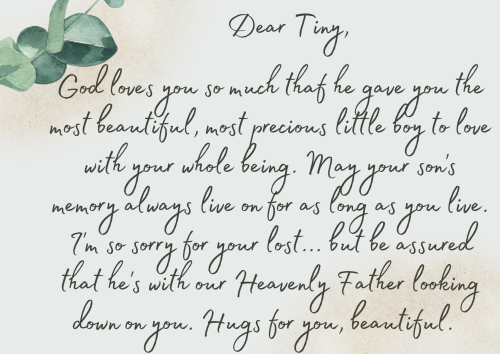 Dear Tiny,
God loves you so much that he gave you the
most beautiful, most precious little boy to love
with your whole being. May your son's
memory always live on for as long as you live.
I'm so sorry for your lost... but be assured
that he's with our Heavenly Father looking
down on you. Hugs for you, beautiful.